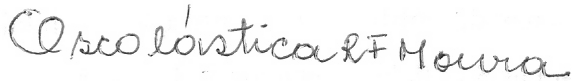 Escolástica R F Moura